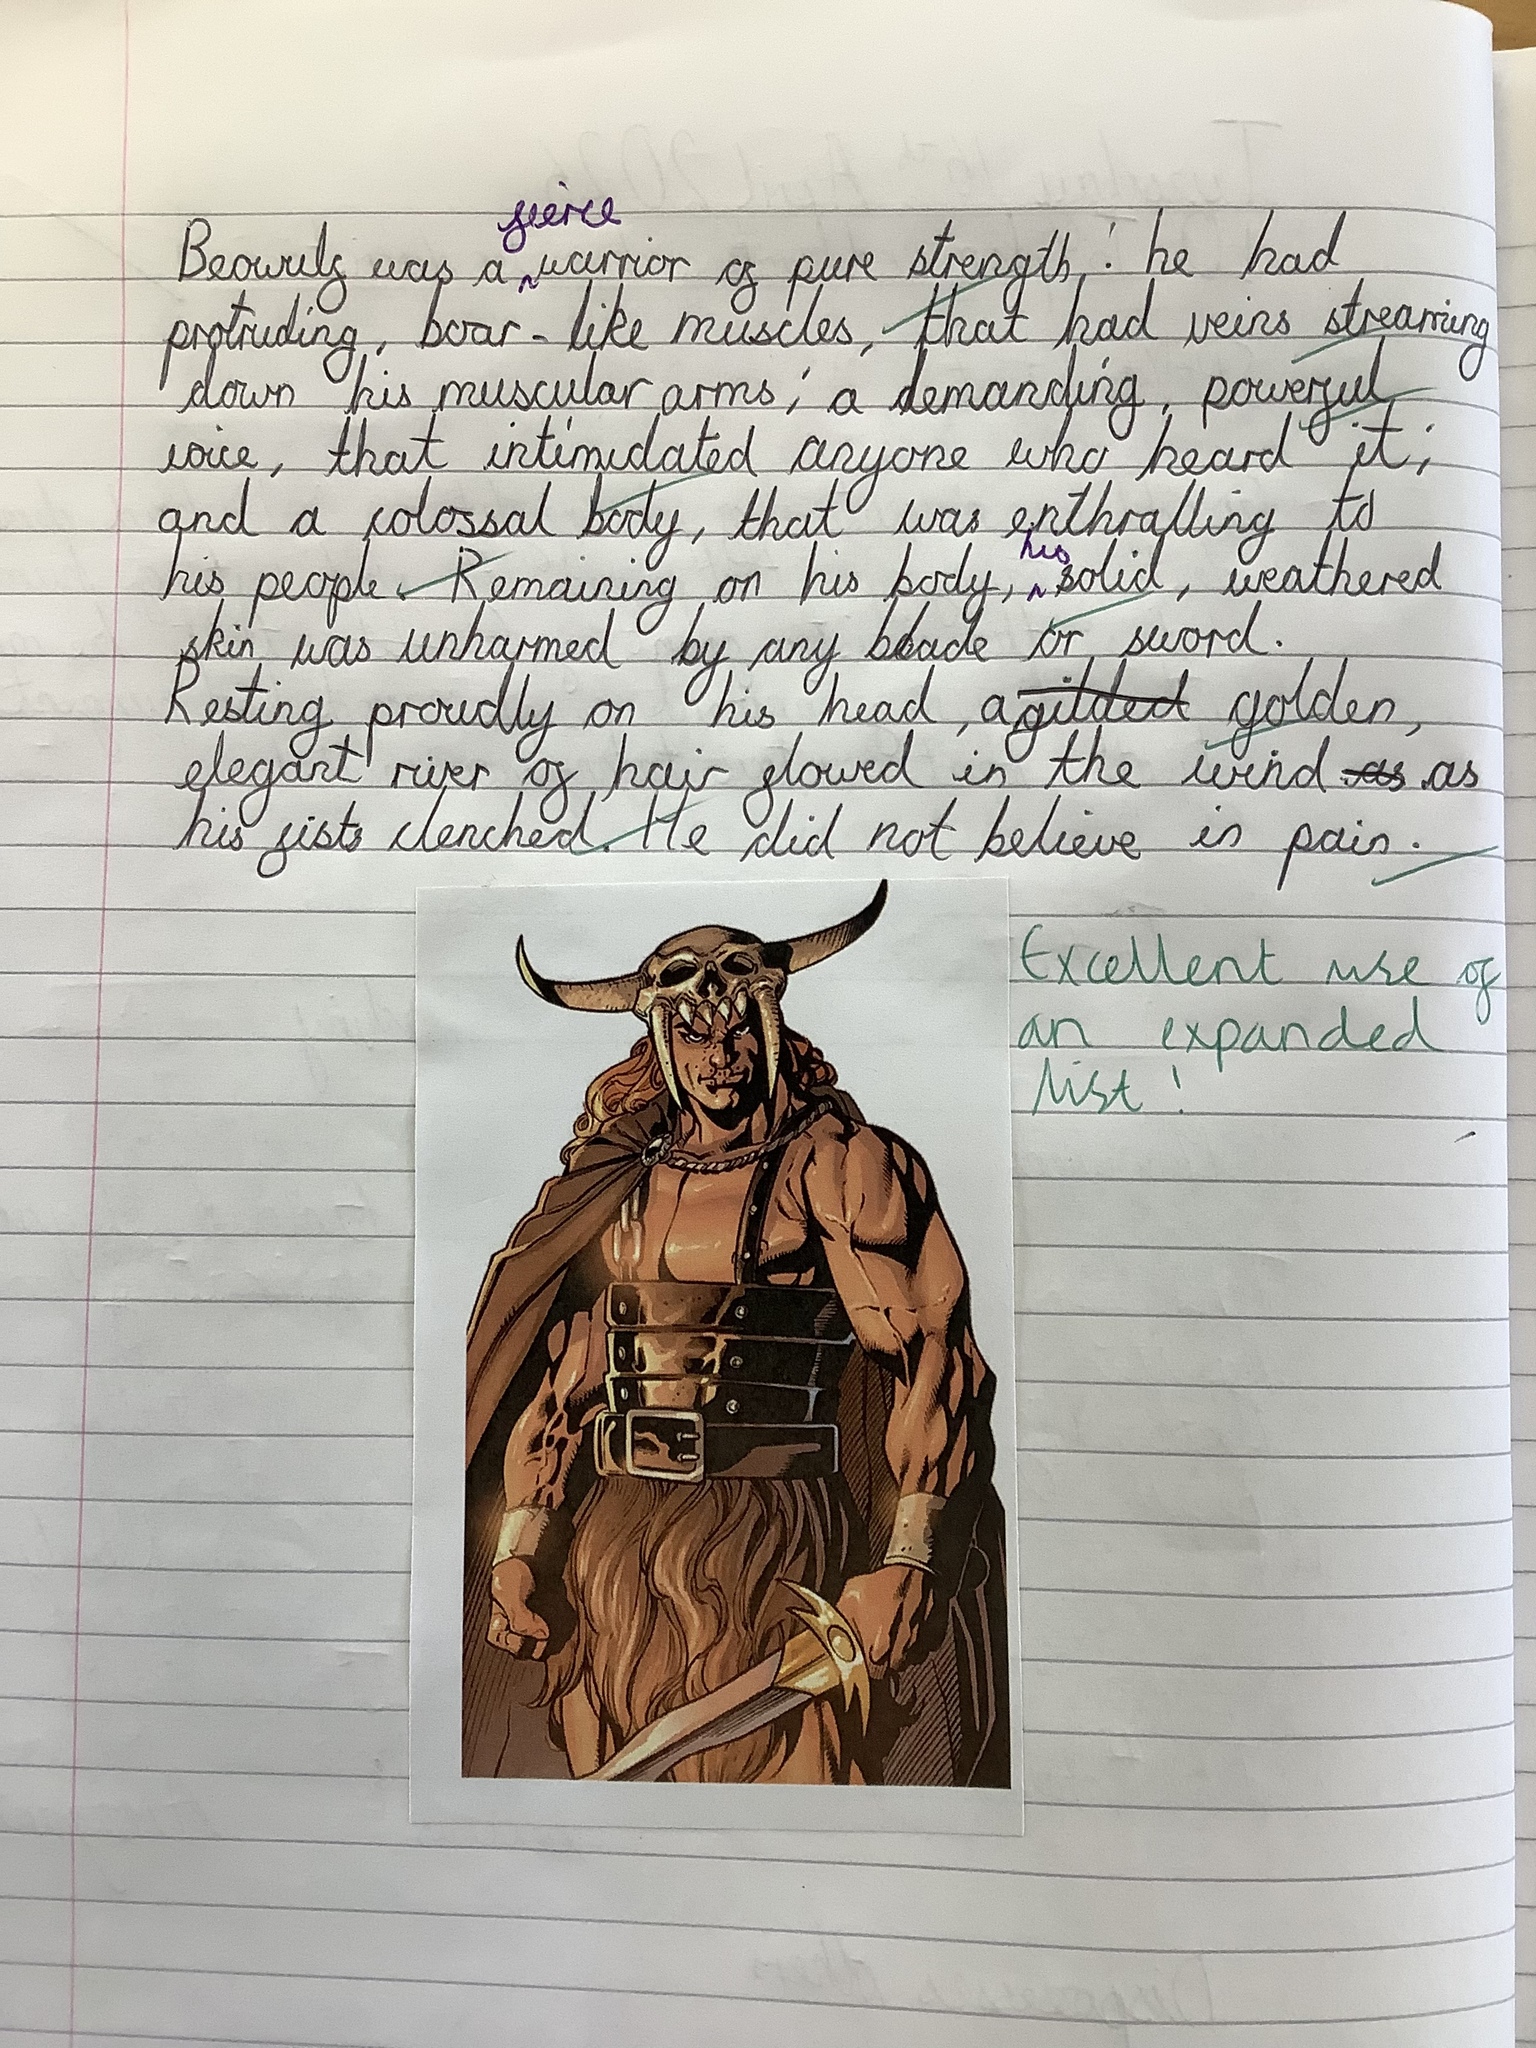 Beowulf was a fierce warrior of pure strength: he had
protruding, boar-like muscles, that had veins streaming
down his muscular arms; a demanding, powerful
voice, that intimidated anyone who heard it;
and a colossal body, that was enthralling to
his people. Remaining on his body, his solid, weathered
skin was unharmed by any blade or sword.
Resting proudly on his head, a gilded golden,
elegant river of hair flowed in the wind as as
his fists clenched. He did not believe in pain.
Excellent use of
an expanded
list!